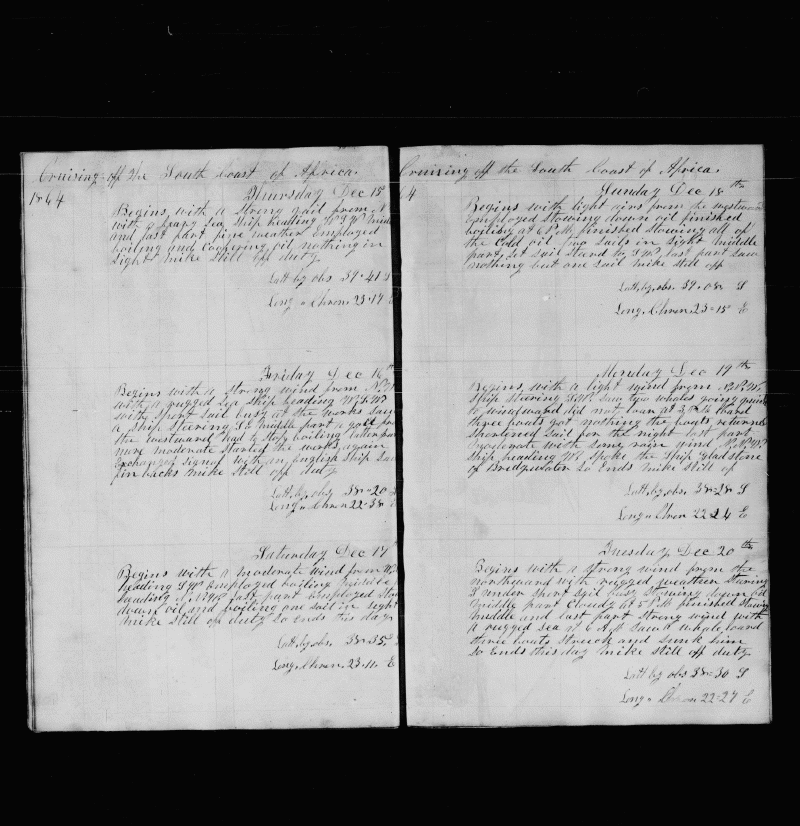 Cruising off the South Coast of Africa
1864
Thursday Dec 15
Begins with a Strong gail from
with a heavy Sea Ship heading
and last part fine weather Employed
boiling and Coopering oil nothing in
Sight mike still off duty
Latt by obs 39-41 S
Long " Chron 23-19 E
Friday Dec 16th
Begins with a strong wind from
with a rugged Sea Ship heading
with short sail busy at the works saw
a Ship Steering S E middle part a gail from
the westward had to stop boiling latter part
more moderate started the works again
Exchanged Signal with an English Ship Saw
fin backs mike still off duty
Latt, by obs 38-20
Long " Chron 22-38
Saturday Dec 17
Begins with a moderate wind from
heading Employed boiling middle
heading last part Employed
down oil and boiling one sail in sight
mike still off duty So Ends this day
Latt, by obs. 38-35
Long, Chron 23-11 E
Cruising off the South Coast of Africa
64
Sunday Dec 18th
Begins with light airs from the westward
employed Stowing down oil finished
boiling at 6 P.M. finished Stowing all of
the Cold oil two Sails in Sight middle
part, last part Saw
nothing but one sail mike still off
Latt, by, obs. 39-08 S
Long, Chron 23-15 E
Monday Dec 19th
Begins, with a light wind from
Ship Steering Saw two whales going quick
to windward did not loar at 3 P.M.
three boats got nothing the boats returned
Shortened Sail for the night last part
moderate with some rain wind
Ship heading W spoke the Ship Gladstone
of Bridgwater So Ends mike still off
Latt, by, obs. 38-28 S
Long " Chron 22-24 E
Tuesday, Dec 20th
Begins with a strong wind from the
northward with rugged weather Stearing
S under short Sail busy Stowing down oil
middle part Cloudy at 5 P.M. finished Stowing
middle and last part strong wind with
a rugged Sea at 6 A.M. Saw a whale loard
three boats Struck and sunk him
So Ends this day mike still off duty
Latt by obs 38-30 S
Long " Chron 22-27 E